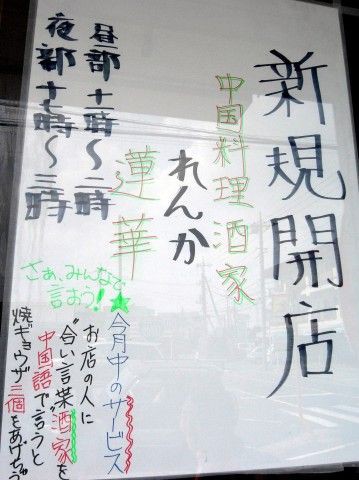 新規開店
中国料理酒家
れんか
蓮華
昼部 十一時〜二時
夜部 十七時〜三時
さぁ、みんなで
言おう!★
今月中のサービス
お店の人に
"合い言葉"酒家"を
中国語で言うと
焼ギョウザ三個をあげちゃう